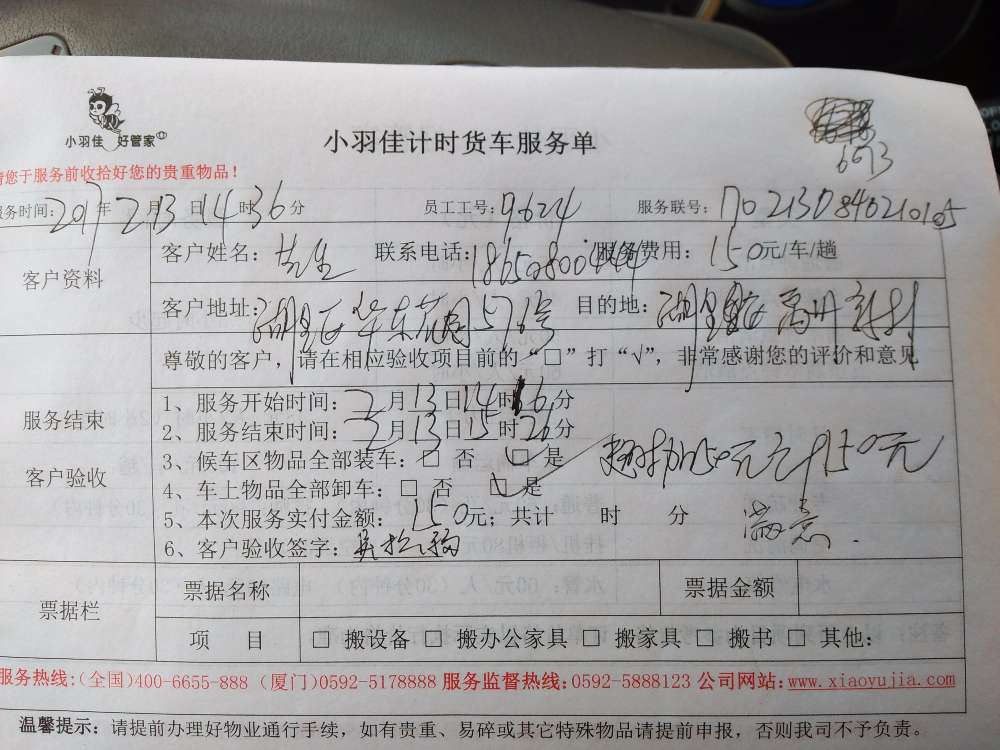 小羽佳 好管家
小羽佳计时货车服务单
6673
请您于服务前收拾好您的贵重物品！
服务时间：2017年2月13日14时36分 员工工号：9624 服务联号：702130840210105
客户资料
客户姓名： 先生 联系电话： 服务费用：150元/车/趟
客户地址：湖里区华东花园576号 目的地：湖里
尊敬的客户，请在相应验收项目前的“□”打“√”，非常感谢您的评价和意见
服务结束
客户验收
1、服务开始时间：2月13日14时36分
2、服务结束时间：2月13日15时26分
3、候车区物品全部装车：□ 否 □ 是
4、车上物品全部卸车：□ 否 □ 是
5、本次服务实付金额：150元；共计 时 分 满意.
6、客户验收签字：
票据栏
票据名称 票据金额
项 目 □ 搬设备 □ 搬办公家具 □ 搬家具 □ 搬书 □ 其他：
服务热线：(全国)400-6655-888 (厦门)0592-5178888 服务监督热线：0592-5888123 公司网站：www.xiaoyujia.com
温馨提示：请提前办理好物业通行手续，如有贵重、易碎或其它特殊物品请提前申报，否则我司不予负责。